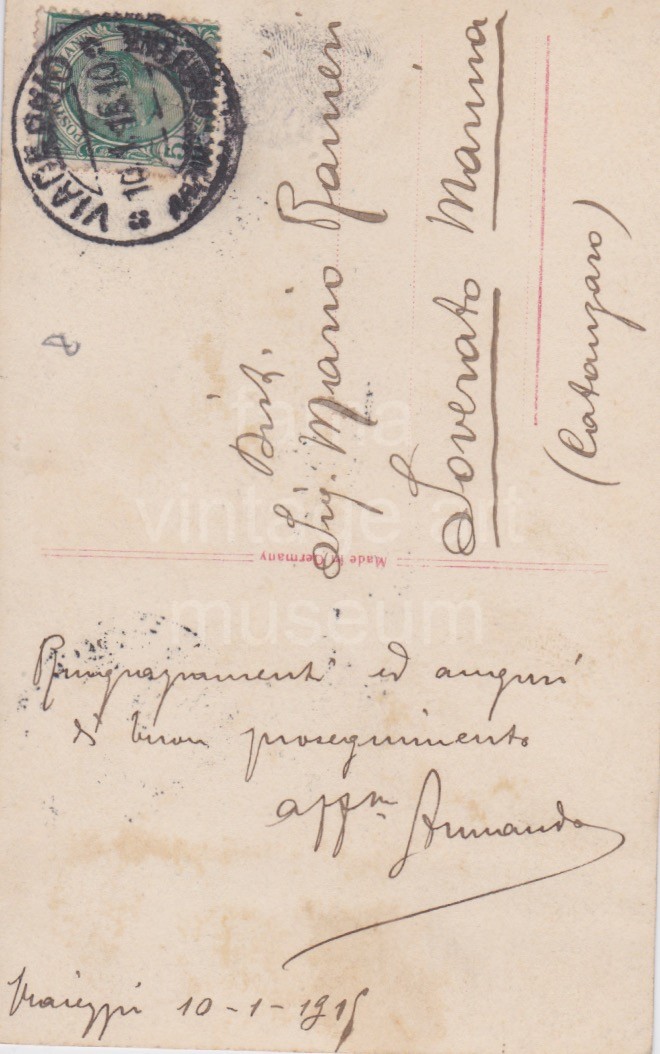 VIAREGGIO
10.1.15.10
POSTE ITALIANE
5
Dist.
Sig. Mario Ranieri
Soverato Marina
(Catanzaro)
Made in Germany
fama
vintage art
museum
Ringraziamenti ed auguri
di buon proseguimento
affmo Armando
Viareggio 10-1-1915